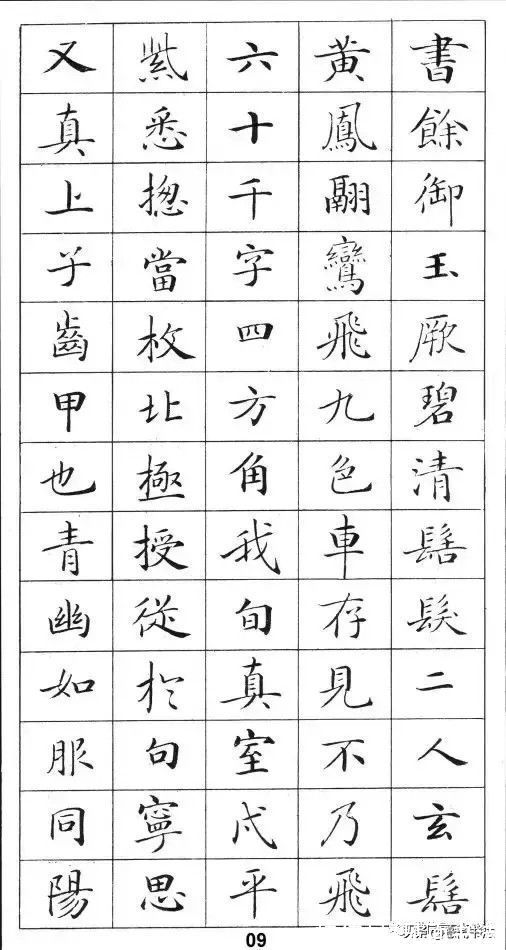 書餘御玉厥碧清髮二人玄
黃鳳翮鸞飛九色車存見不乃飛
六十千字四方角我旬真室戍平
紫悉揔當枚北極授從於句寧思
又真上子齒甲也青幽如服同陽
09